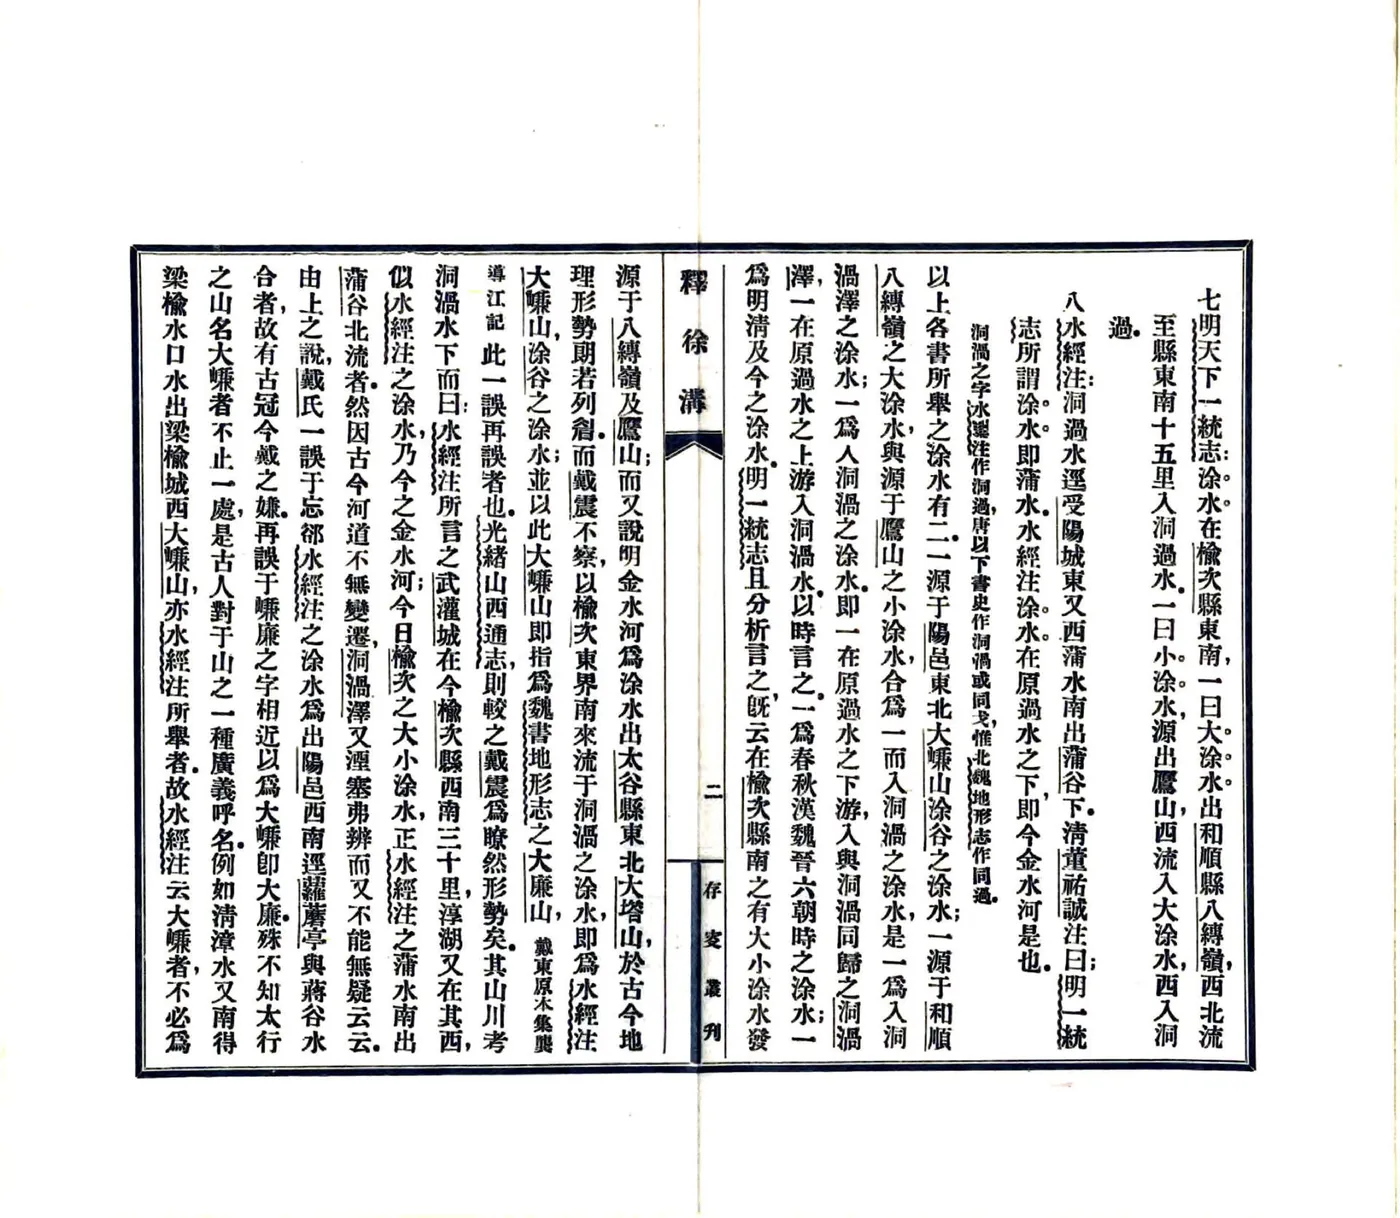 七明天下一統志:涂水在榆次縣東南,一曰大涂水出和順縣八縳嶺,西北流
至縣東南十五里入洞過水.一曰小涂水,源出鷹山,西流入大涂水,西入洞
過.
八水經注:洞過水逕受陽城東又西蒲水南出蒲谷下.清董祐誠注曰;明一統
志所謂涂水即蒲水.水經注涂水在原過水之下,即今金水河是也.
洞渦之字水經注作洞過,唐以下書史作洞渦或同戈,惟北魏地形志作同過.
以上各書所舉之涂水有二.一源于陽邑東北大嵰山涂谷之涂水;一源于和順
八縳嶺之大涂水,與源于鷹山之小涂水,合爲一而入洞渦之涂水,是一爲入洞
渦澤之涂水;一爲入洞渦之涂水.即一在原過水之下游,入與洞渦同歸之洞渦
澤,一在原過水之上游入洞渦水.以時言之.一爲春秋漢魏晉六朝時之涂水;一
爲明清及今之涂水.明一統志且分析言之,既云在榆次縣南之有大小涂水發
釋徐溝
二
存叜叢刊
源于八縳嶺及鷹山;而又說明金水河爲涂水出太谷縣東北大塔山,於古今地
理形勢朗若列眉.而戴震不察,以榆次東界南來流于洞渦之涂水,即爲水經注
大嵰山,涂谷之涂水;並以此大嵰山即指爲魏書地形志之大廉山,戴東原本集龑
導江記此一誤再誤者也.光緒山西通志,則較之戴震爲瞭然形勢矣.其山川考
洞渦水下而曰:水經注所言之武灌城在今榆次縣西南三十里,淳湖又在其西,
似水經注之涂水,乃今之金水河;今日榆次之大小涂水,正水經注之蒲水南出
蒲谷北流者.然因古今河道不無變遷,洞渦澤又湮塞弗辨而又不能無疑云云.
由上之說,戴氏一誤于忘郤水經注之涂水爲出陽邑西南逕蘿蘑亭與蔣谷水
合者,故有古冠今戴之嫌.再誤于嵰廉之字相近以爲大嵰卽大廉.殊不知太行
之山名大嵰者不止一處,是古人對于山之一種廣義呼名.例如清漳水又南得
梁榆水口水出梁榆城西大嵰山,亦水經注所舉者.故水經注云大嵰者,不必爲